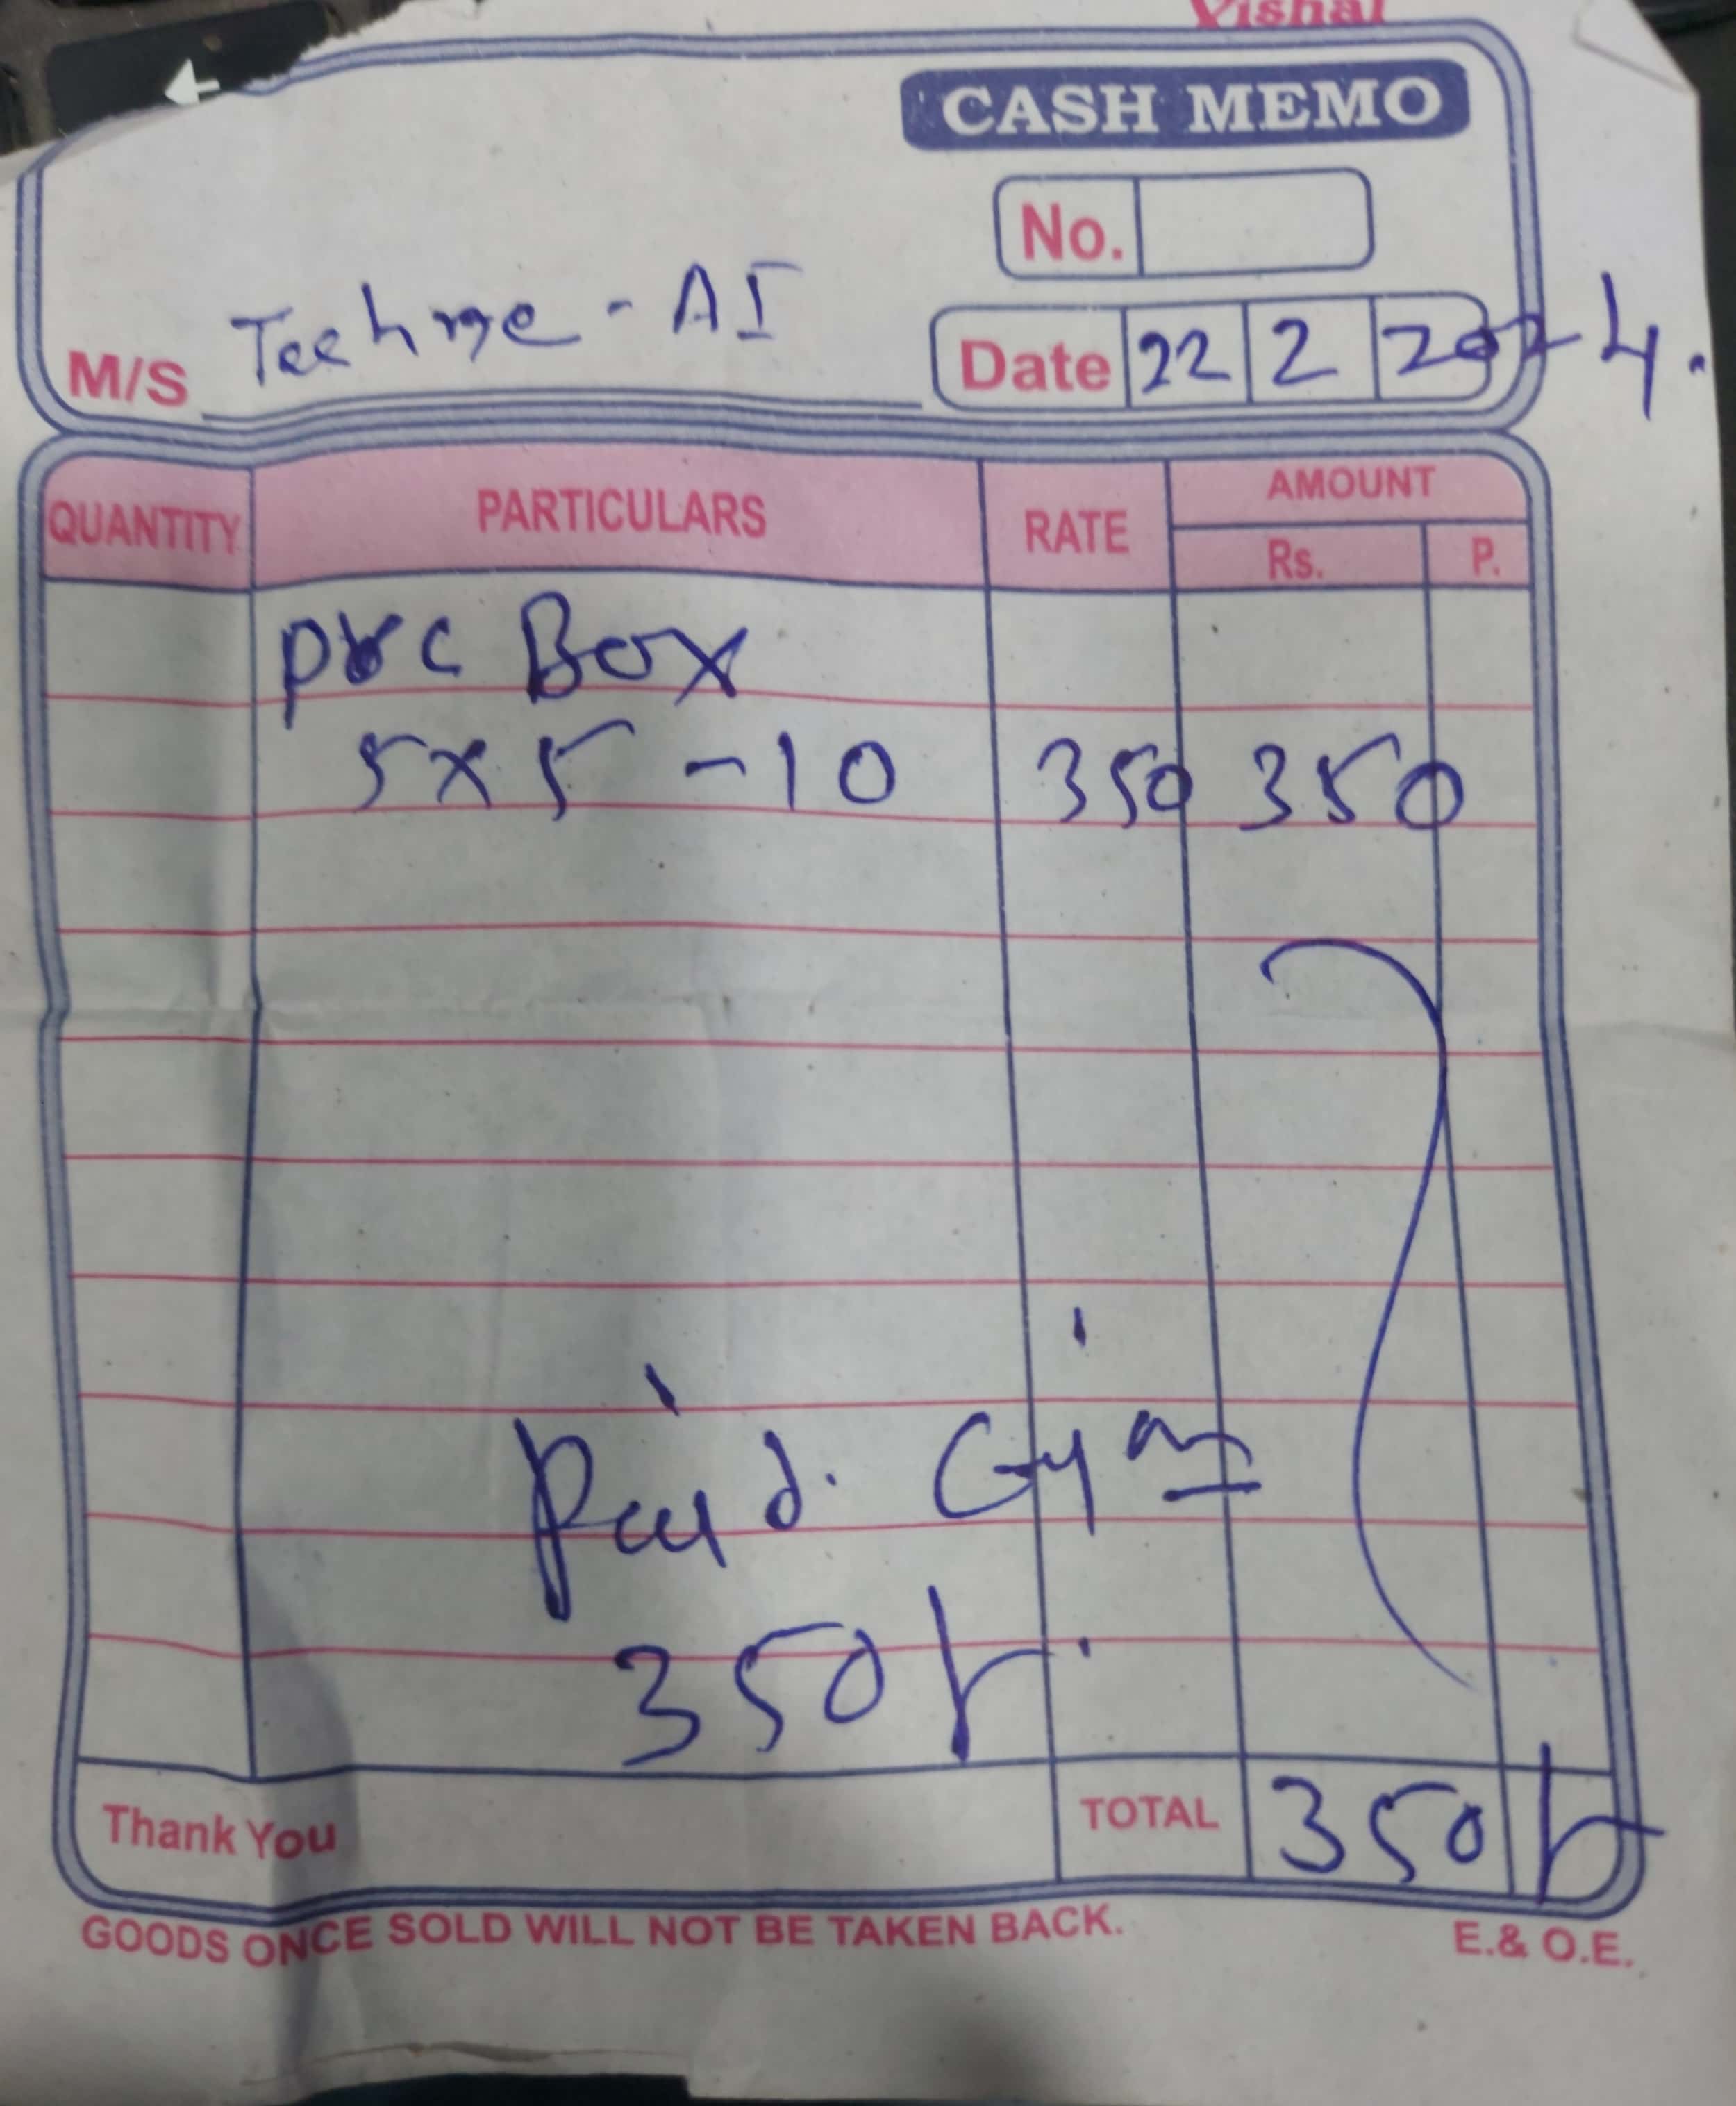 Vishal
CASH MEMO
No.
M/S Techme - AI
Date 22 2 2024.
QUANTITY PARTICULARS RATE AMOUNT
Rs. P.
PVC Box
5x5 - 10 350 350
Paid.
350/-
Thank You TOTAL 350/-
GOODS ONCE SOLD WILL NOT BE TAKEN BACK. E.& O.E.